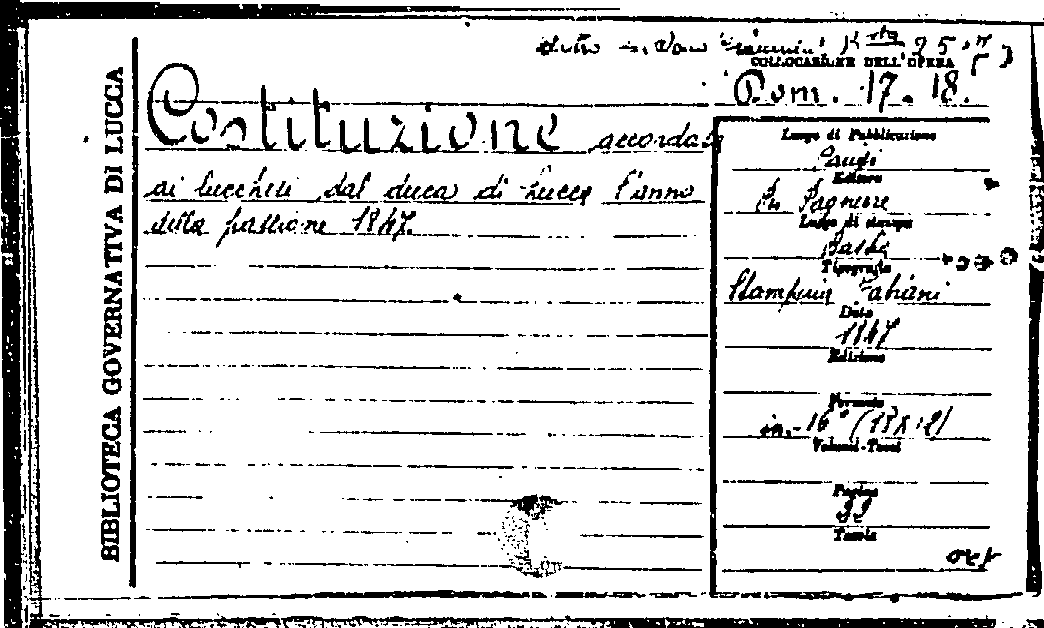 BIBLIOTECA GOVERNATIVA DI LUCCA
COLLOCAZIONE DELL'OPERA
Pom. 17. 18.
Costituzione accordata
ai lucchesi dal duca di Lucca l'anno
della passione 1847.
Luogo di Pubblicazione
Editore
Luogo di stampa
Bastia
Tipografia
Stamperia Fabiani
Data
1847
Edizione
Formato
in-16°
Volumi-Tomi
Pagine
Tavole